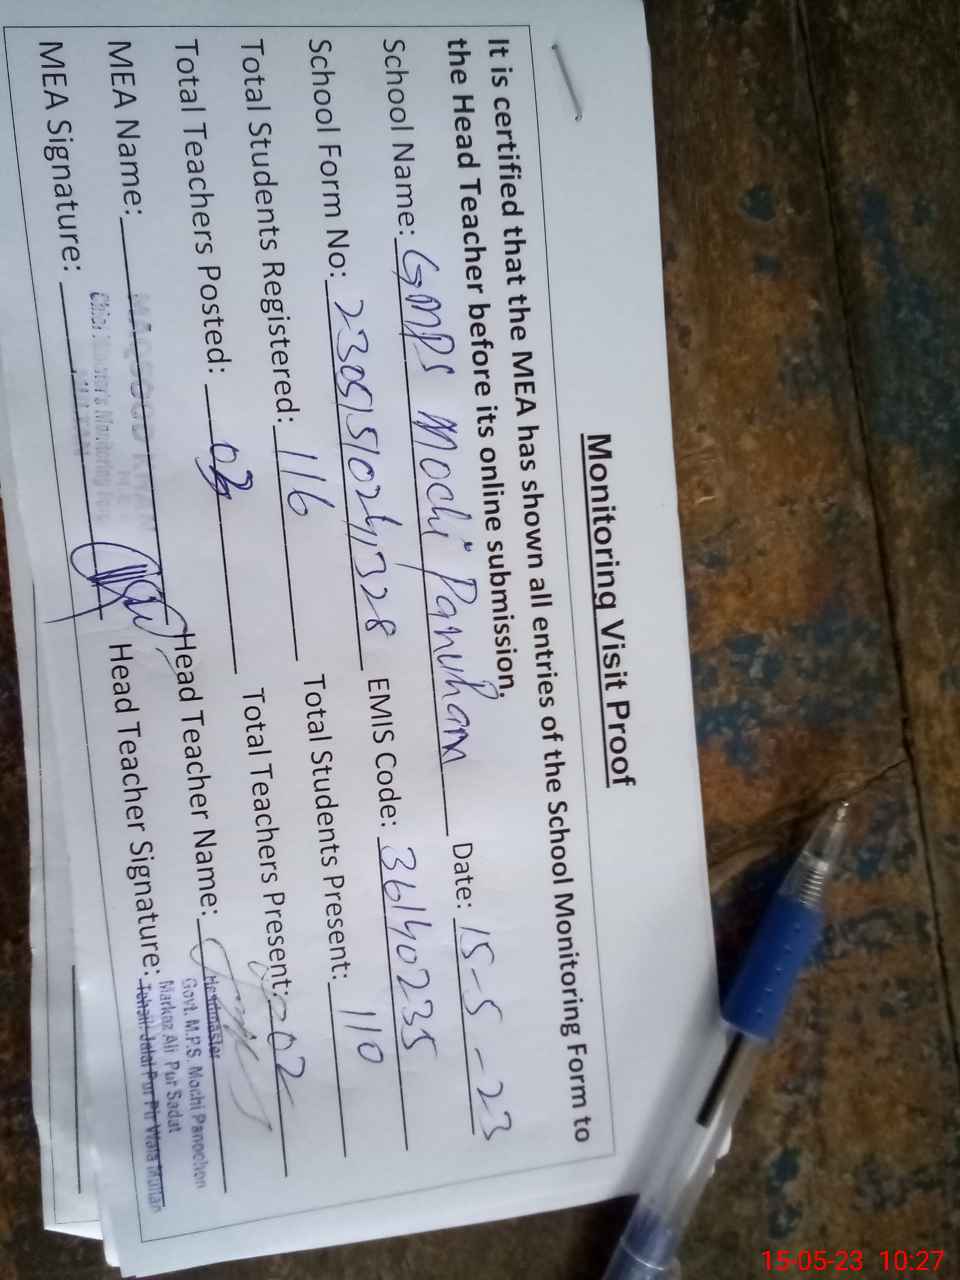 Monitoring Visit Proof
It is certified that the MEA has shown all entries of the School Monitoring Form to
the Head Teacher before its online submission.
School Name: GMPS Mochi Panuhan Date: 15-5-23
School Form No: EMIS Code: 36140235
Total Students Registered: 116 Total Students Present: 110
Total Teachers Posted: 02 Total Teachers Present: 02
MEA Name: MAQSOOD KHAN Head Teacher Name:
MEA Signature: Head Teacher Signature:
Chief Monitoring
MULTAN
Headmaster
Govt. M.P.S. Mochi Panoohan
Markaz Ali Pur Sadat
Tehsil Jalal Pur Pir Wala Multan
15-05-23 10:27